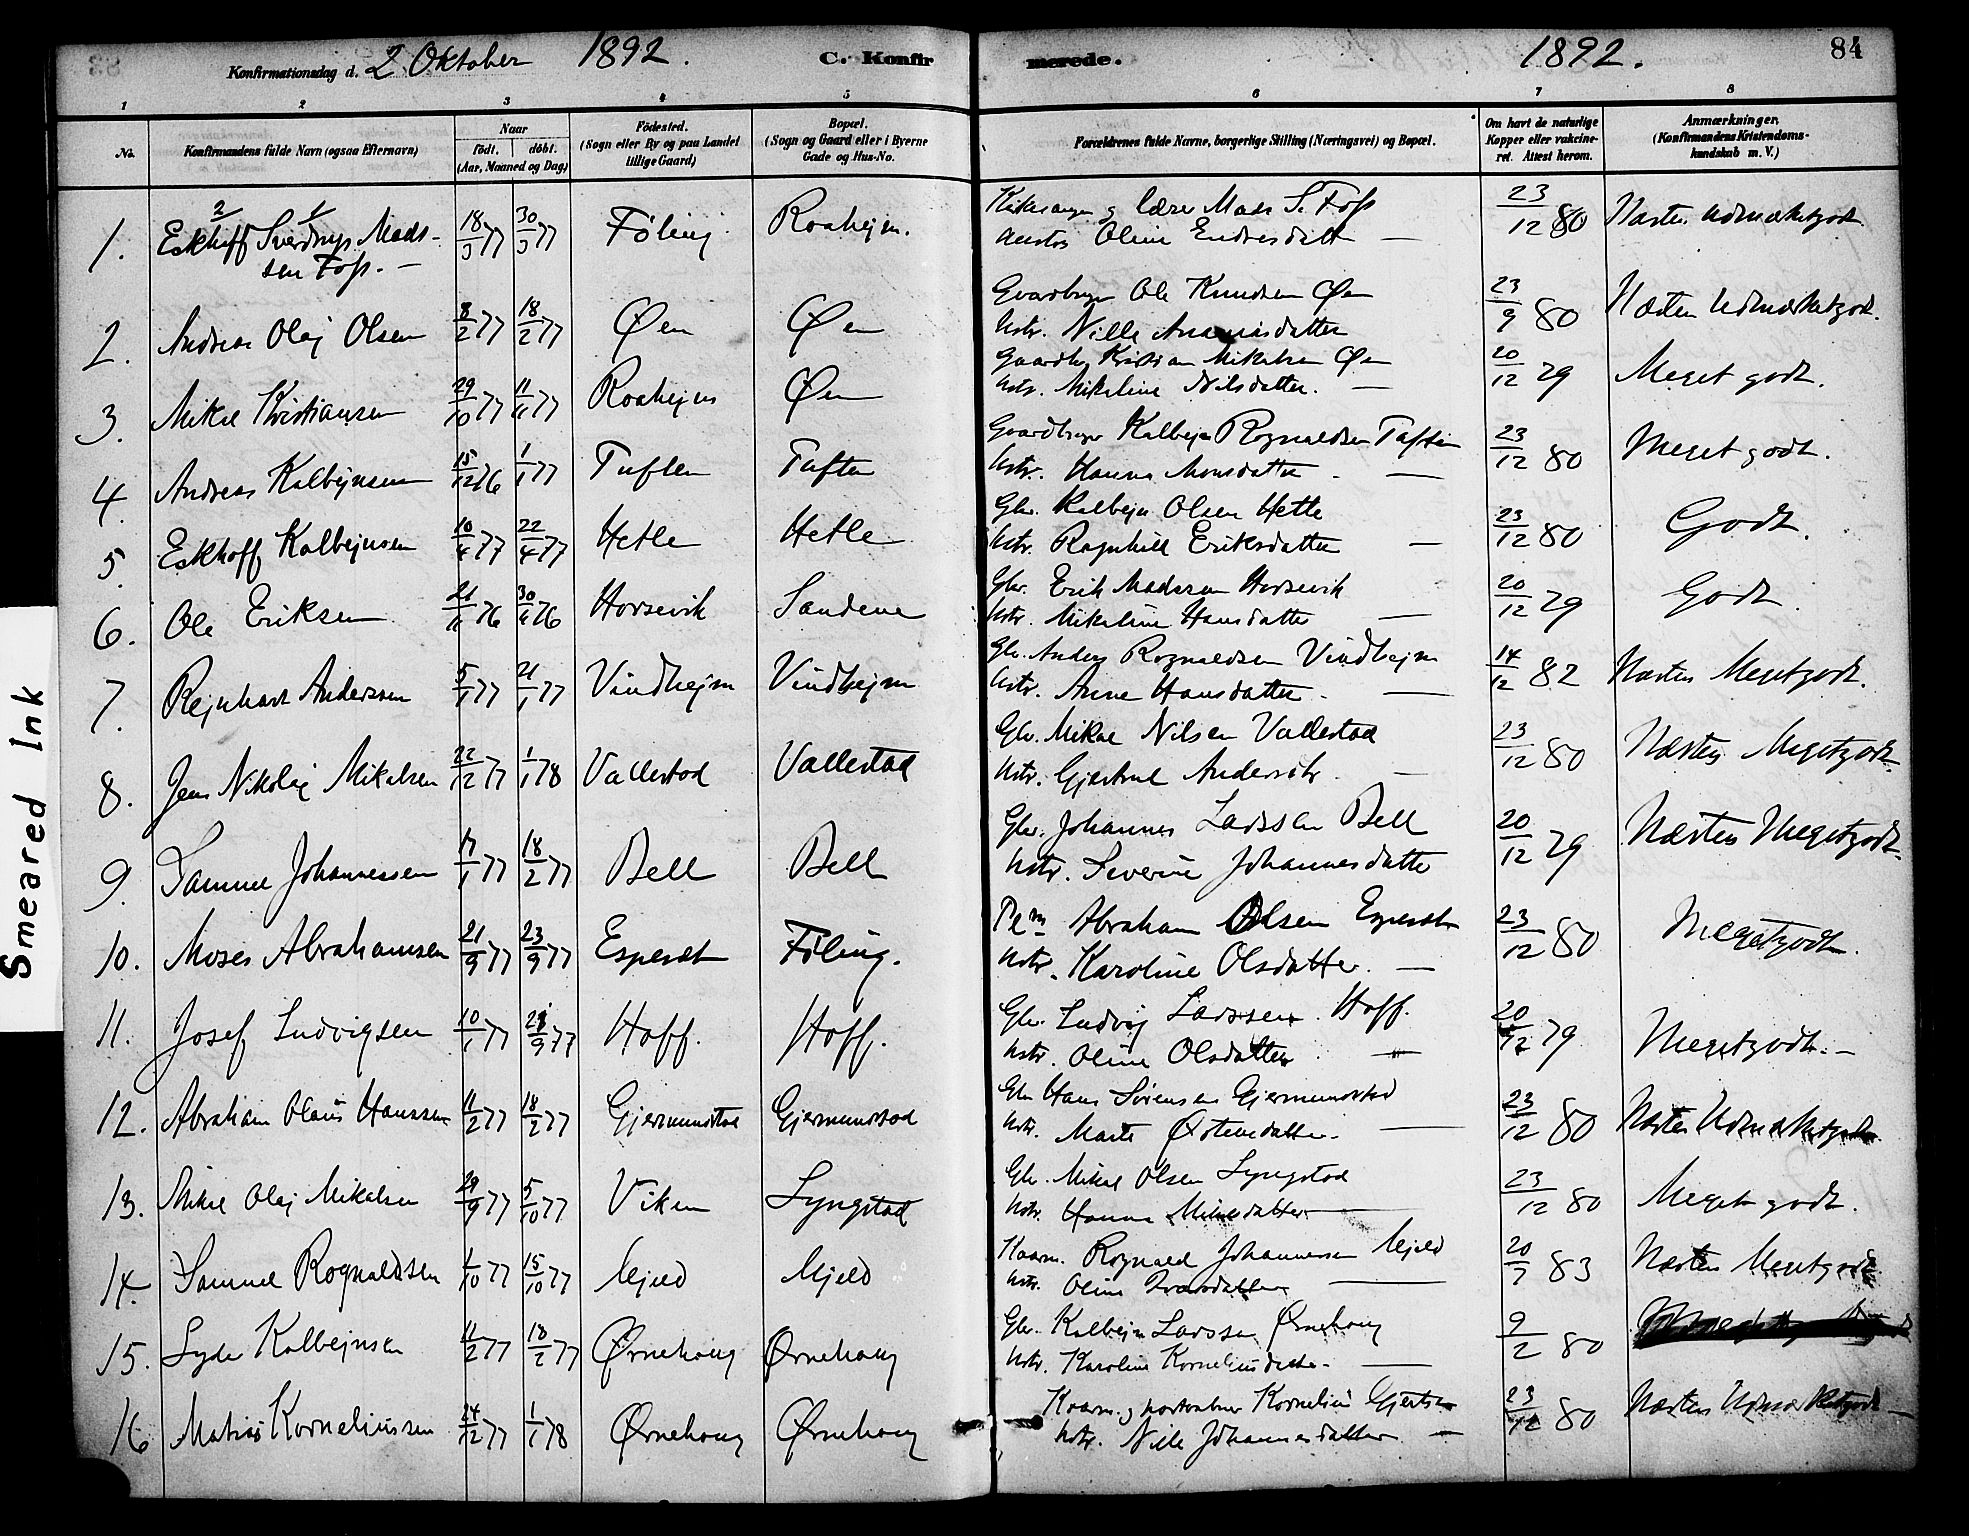 Konfirmationsdag d. 2 Oktober 1892. C. Konfirmerede. 1892. 84
1 2 3 4 5 6 7 8
No. Konfirmandens fulde Navn (ogsaa Efternavn) Naar født. døbt. (Aar, Maaned og Dag) Fødested. (Sogn eller By og paa Landet tillige Gaard) Bopæl. (Sogn og Gaard eller i Byerne Gade og Hus-No. Forældrenes fulde Navne, borgerlige Stilling (Næringsvei) og Bopæl. Om havt de naturlige Kopper eller vakcineret. Attest herom. Anmærkninger. (Konfirmandens Kristendomskundskab m. V.)
1. Eskhoff Sverdrup Mads- 18/3 77 30/3 77 Føling Roahejm. Kirkesanger og lærer Mads S. Foss 23/12 80 Næsten Udmærketgodt
sen Foss. — Oline Endresdatt —
2. Andreas Olaj Olsen 8/2 77 18/2 77 Øen Øen Gaardbruger Ole Knudsen Øen 23/9 80 Næsten Udmærketgodt.
Ustr. Nille
3. Mikal Kristiansen 29/10 77 11/11 77 Roahejm Øen Gaardbr. Kristian Mikalsen Øen 20/12 79 Meget godt.
ustr. Mikaline Nilsdatter. —
4. Andreas Kolbejnsen 15/12 76 1/1 77 Tuften Tuften Gaardbruger Kolbejn Rognaldsen Tuften 23/12 80 Meget godt.
Ustr. Hanna Monsdatter —
5. Eskhoff Kolbejnsen 10/4 77 22/4 77 Hetle Hetle Gbr. Kolbejn Olsen Hetle 23/12 80 Godt.
Ustr. Ragnhild Eriksdatter —
6. Ole Eriksen 21/11 76 30/11 76 Horsevik Sandene Gbr. Erik Madssen Horsevik 20/12 79 Godt.
ustr. Mikaline Hansdatter —
7. Rejnhart Anderssen 5/1 77 21/1 77 Vindhejm Vindhejm Gbr. Anders Rognaldsen Vindhejm 14/12 82 Næsten Megetgodt.
Ustr. Anne Hansdatter. —
8. Jens Nikolaj Mikalsen 22/12 77 1/1 78 Vallestad Vallestad Gbr. Mikal Nilsen Vallestad 23/12 80 Næsten Megetgodt.
Ustr. Gjertrud Andersdtr. —
9. Samuel Johannessen 17/1 77 18/2 77 Bell Bell Gbr. Johannes Larssen Bell 20/12 79 Næsten Megetgodt.
Ustr. Severine Johannesdatter
10. Moses Abrahamsen 21/9 77 23/9 77 Esperst Føling. Plm Abraham Olsen Esperst 23/12 80 Megetgodt.
Ustr. Karoline Olsdatter. —
11. Josef Ludvigsen 10/1 77 21/9 77 Hoff. Hoff. Gbr. Ludvig Larssen. Hoff. 20/12 79 Megetgodt. —
Ustr. Oline Olsdatter —
12. Abraham Olaus Hanssen 11/2 77 18/2 77 Gjermundstad Gjermundstad Gbr Hans Sørensen Gjermundstad 23/12 80 Næsten Udmærketgodt
Ustr. Marte Østensdatter. —
13. Mikal Olaj Mikalsen 29/9 77 5/10 77 Viken Lyngstad Gbr. Mikal Olsen Lyngstad 23/12 80 Meget godt.
Ustr. Hanna —
14. Samuel Rognaldsen 1/10 77 15/10 77 Mjeld Mjeld Kaarm. Rognald Johannessen Mjeld 20/7 83 Næsten Megetgodt
Ustr. Oline Ivarsdatter —
15. Syder Kolbejnsen 11/2 77 18/2 77 Ørnehaug Ørnehaug Gbr. Kolbejn Larssen Ørnehaug 9/2 80
Ustr. Karoline Korneliusdatter. —
16 Matias Korneliussen 24/12 77 1/1 78 Ørnehaug Ørnehaug Kaarm. og Kornelius Gjertsen 23/12 80 Næsten Udmærketgodt —
Ustr. Nille Johannesdatter —
Smeared Ink